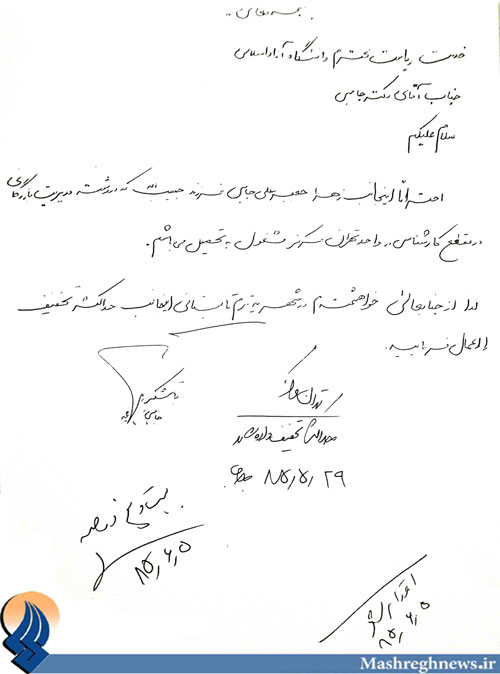 بسمه تعالی
خدمت ریاست محترم دانشگاه آزاد اسلامی
جناب آقای دکتر جاسبی
سلام علیکم
احتراماً اینجانب زهرا جعبه علی جاسبی فرزند حبیب الله که در رشته مدیریت بازرگانی
در مقطع کارشناسی در واحد تهران مرکز مشغول به تحصیل می باشم.
لذا از جنابعالی خواهشمندم در شهریه ترم تابستانی اینجانب حداکثر تخفیف
اعمال فرمایید.
با تشکر
جاسبی
تهران مرکز
حداکثر تخفیف داده شود
۸۵/۵/۲۹
بیست و پنج درصد
۸۵/۶/۵
اقدام شد
۸۵/۶/۵
Mashreghnews.ir